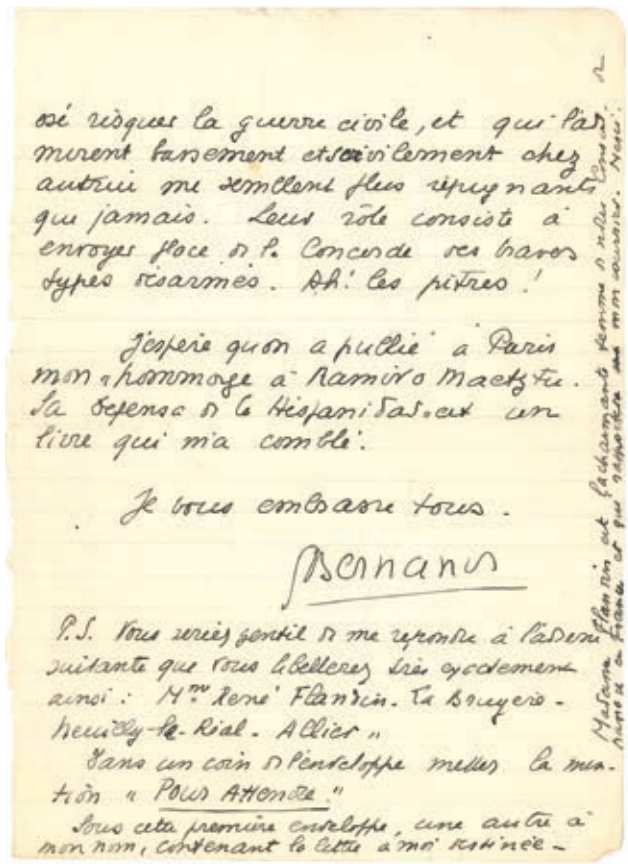 osé risquer la guerre civile, et qui l'ad
mirent bassement et servilement chez
autrui me semblent plus répugnants
que jamais. Leur rôle consiste à
envoyer place de la Concorde des braves
types désarmés. Ah! les pitres!
J'espère qu'on a publié à Paris
mon "hommage à Ramiro Maetztu.
Sa Defensa de la Hispanidad est un
livre qui m'a comblé.
Je vous embrasse tous.
Bernanos
P.S. Vous seriez gentil de me répondre à l'adresse
suivante que vous libellerez très exactement
ainsi: Mme René Flandin. La Bruyère-
Neuilly-le-Réal. Allier"
Dans un coin de l'enveloppe mettez la men-
tion "POUR ATTENDRE."
Sous cette première enveloppe, une autre à
mon nom, contenant la lettre à moi destinée-
Madame Flandin est la charmante femme de notre Consul. de
France et qui mon courrier. Merci.